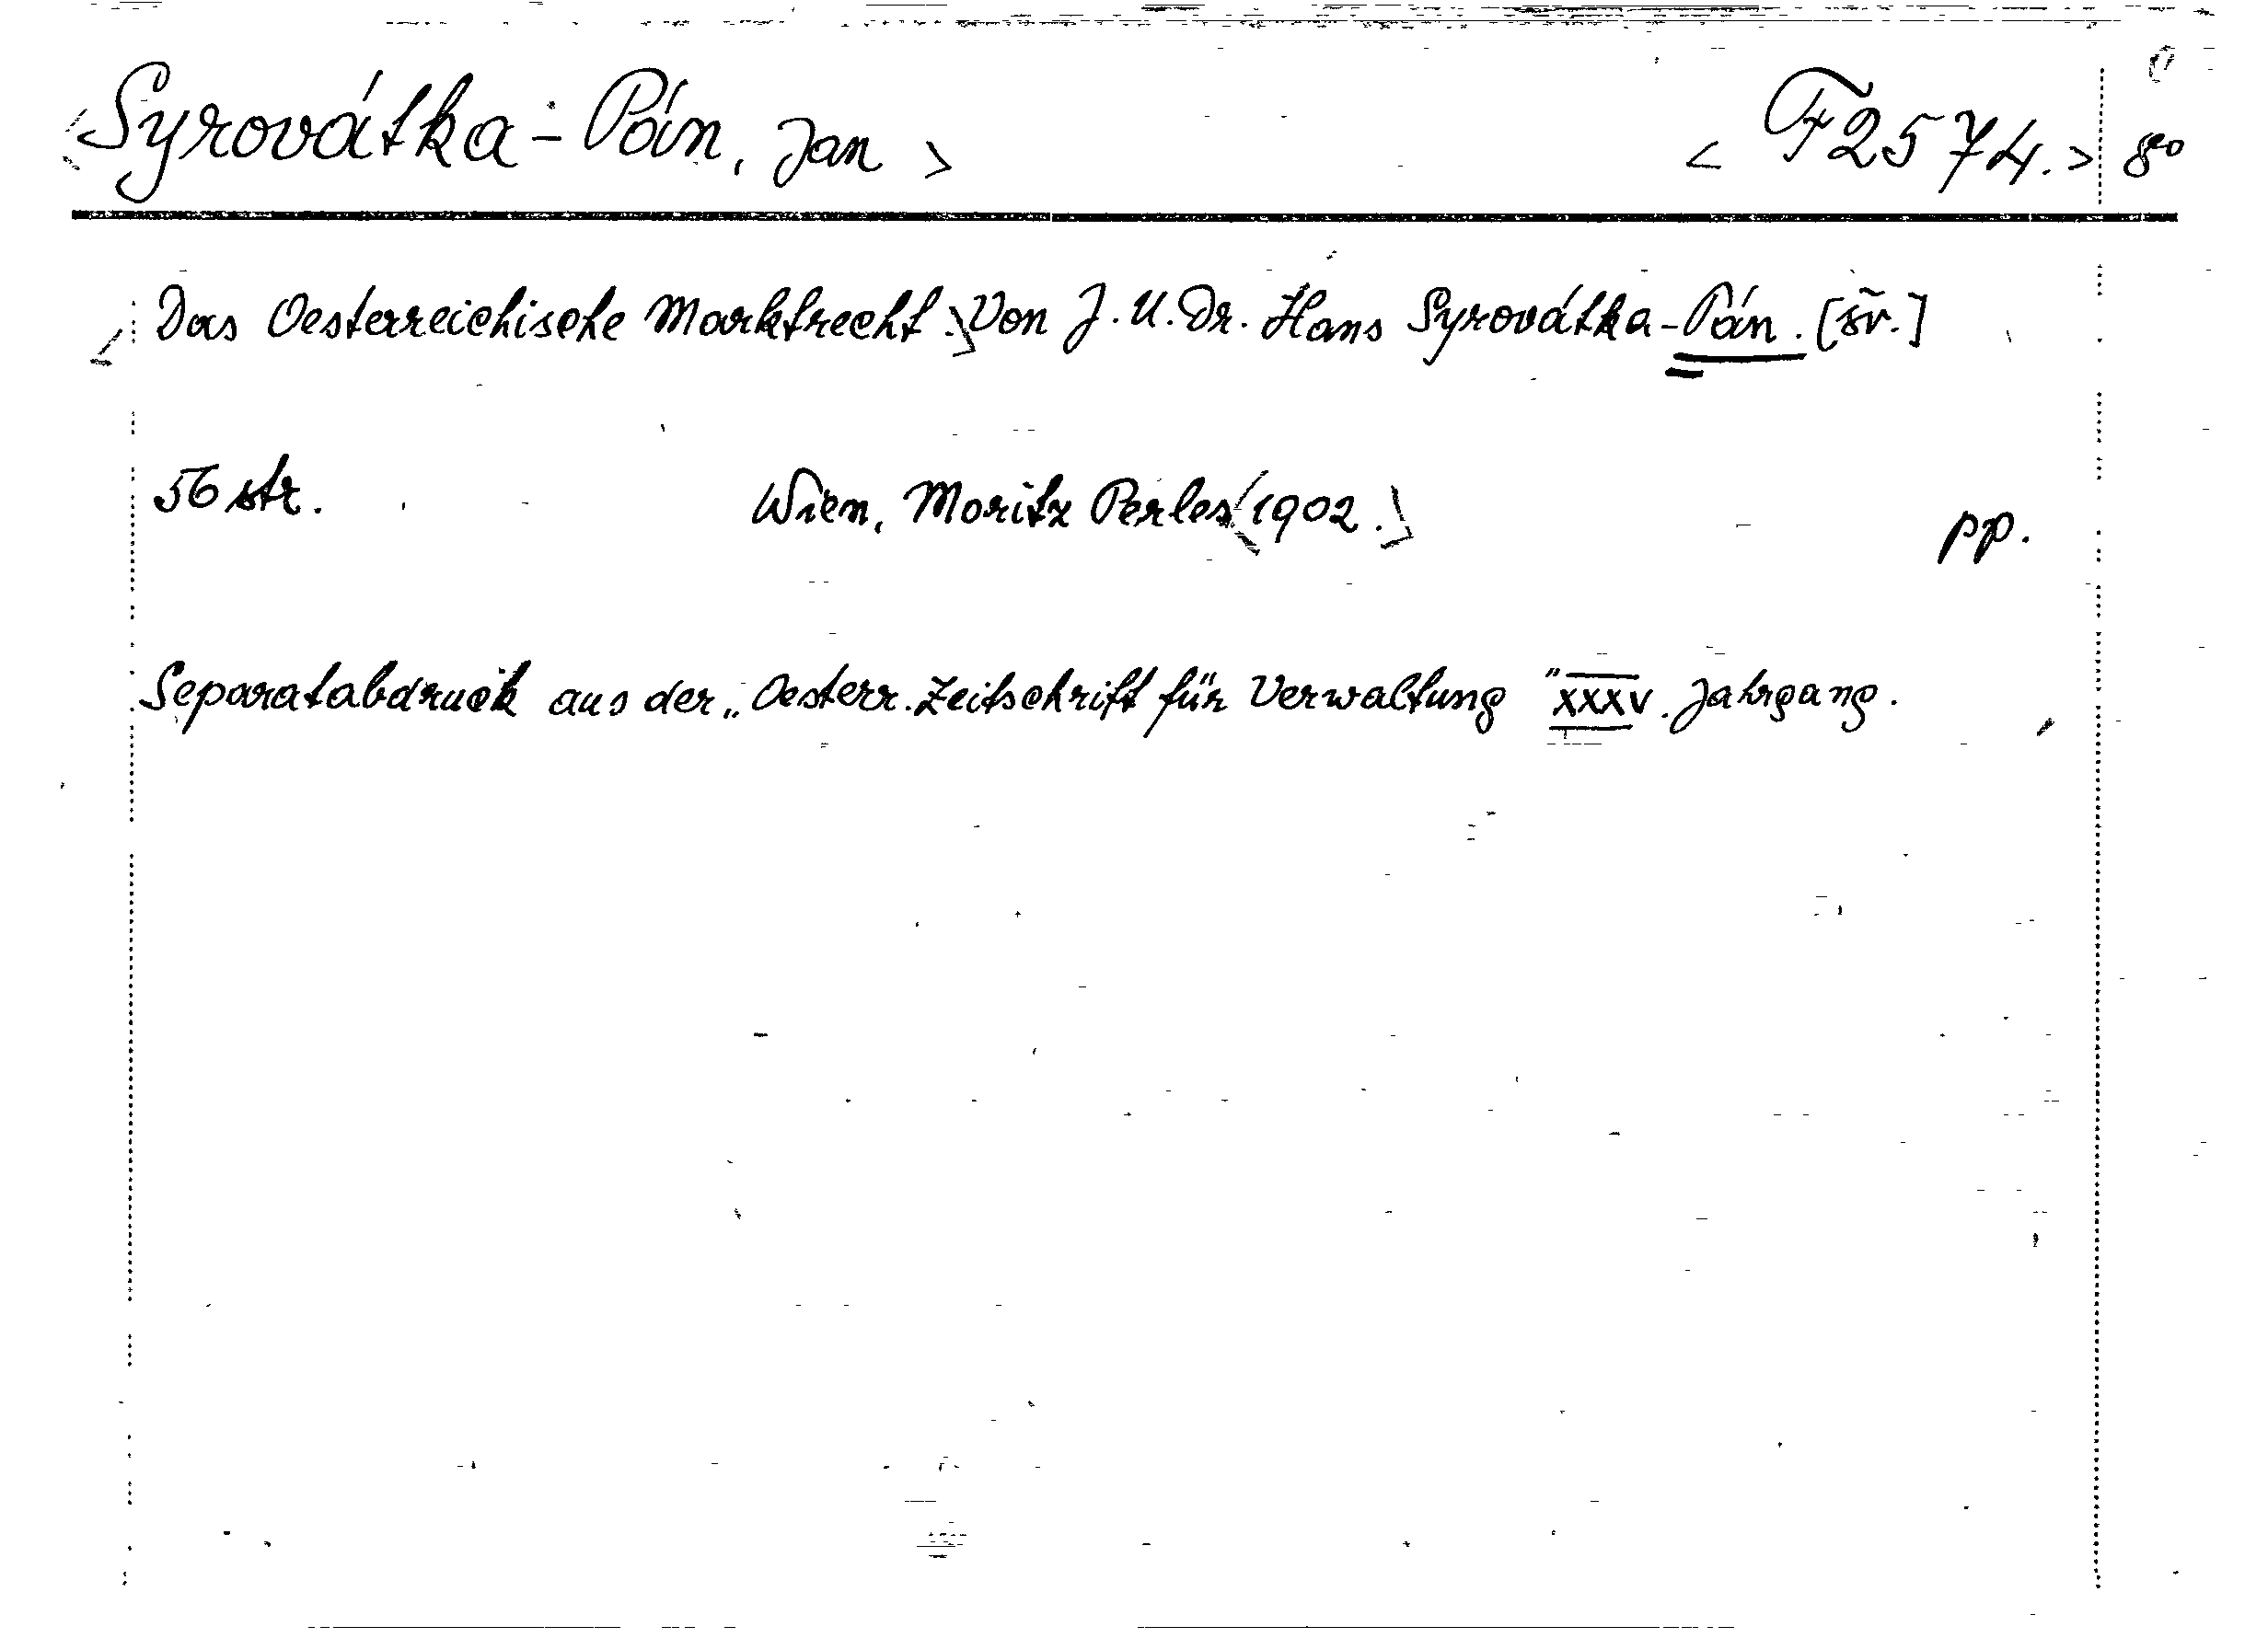 <Syrovátka-Pán, Jan> <F 2574.> 8°
<Das Oesterreichische Marktrecht.> Von J. U. Dr. Hans Syrovátka-Pán. [šv.]
56 str. Wien, Moritz Perles <1902.> pp.
Separatabdruck aus der „Oesterr. Zeitschrift für Verwaltung" XXXV. Jahrgang.